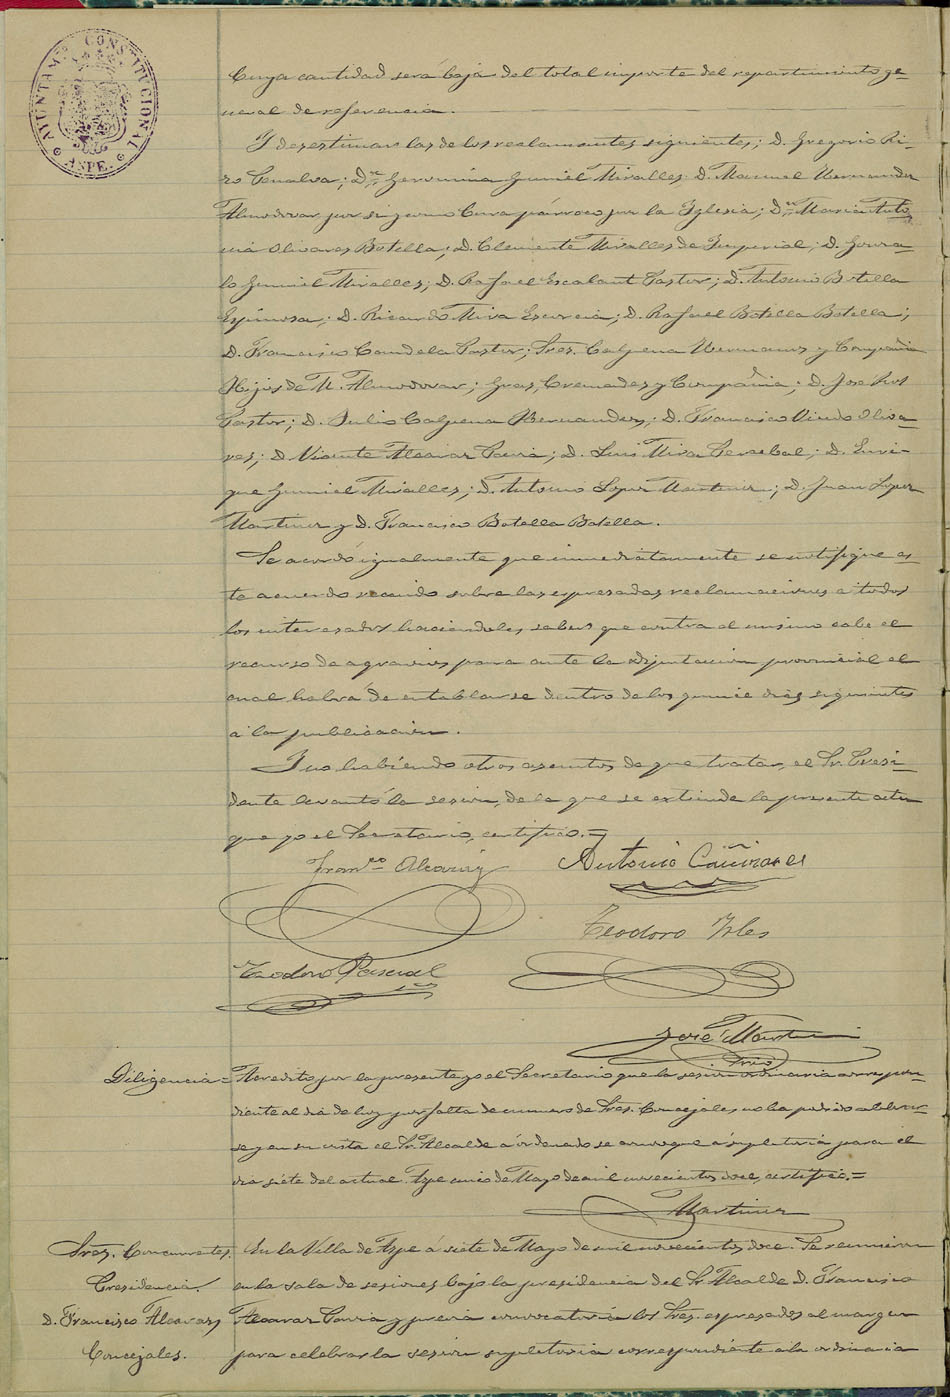 AYUNTAMTO CONSTITUCIONAL
ASPE.
Cuya cantidad será baja del total importe del repartimiento ge-
neral de referencia.
Y desestimar las de los reclamantes siguientes; D. Gregorio Ri-
zo Cenalva; Dña Geronima Gumiel Miralles. D. Manuel Hernandez
Almodovar por si y como Cura párroco por la Iglesia; Dña Maria Anto-
nia Olivares Botella; D. Clemente Miralles de Imperial; D. Gonza-
lo Gumiel Miralles; D. Rafael Escalant Pastor; D. Antonio Botella
Espinosa; D. Ricardo Mira; D. Rafael Botella Botella;
D. Francisco Candela Pastor; Sres. Calpena Hermanos y Compañia
Hijos de M. Almodovar; Gras, Cremades y Compañia; D. Jose Ros
Pastor; D. Julio Calpena Hernandez; D. Francisco Vicedo Oliva-
res; D. Vicente Alcaraz; D. Luis Mira; D. Enri-
que Gumiel Miralles; D. Antonio Lopez Martinez; D. Juan Lopez
Martinez y D. Francisco Botella Botella.
Se acordó igualmente que inmediatamente se notifique es-
te acuerdo recaido sobre las expresadas reclamaciones a todos
los interesados haciendoles saber que contra el mismo cabe el
recurso de agravios para ante la Diputacion provincial el
cual habrá de entablarse dentro de los quince dias siguientes
a la publicación.
Y no habiendo otros asuntos de que tratar, el Sr. Presi-
dente levantó la sesion, de la que se extiende la presente acta
que yo el Secretario, certifico.=
Franco Alcaraz
Antonio Cañizares
Teodoro Irles
Teodoro Pascual
José Martinez
Diligencia = Acredito por la presente yo el Secretario que la sesion ordinaria correspon-
diente al dia de hoy por falta de numero de Sres. Concejales no ha podido celebrar-
se y en su vista el Sr. Alcalde á ordenado se convoque á supletoria para el
dia siete del actual. Aspe cinco de Mayo de mil novecientos doce, certifico.=
Martinez
Sres. Concurrentes.
Presidencia.
D. Francisco Alcaraz
Concejales.
En la Villa de Aspe á siete de Mayo de mil novecientos doce. Se reunieron
en la sala de sesiones bajo la presidencia del Sr. Alcalde D. Francisco
Alcaraz y previa convocatoria los Sres. expresados al margen
para celebrar la sesion supletoria correspondiente a la ordinaria